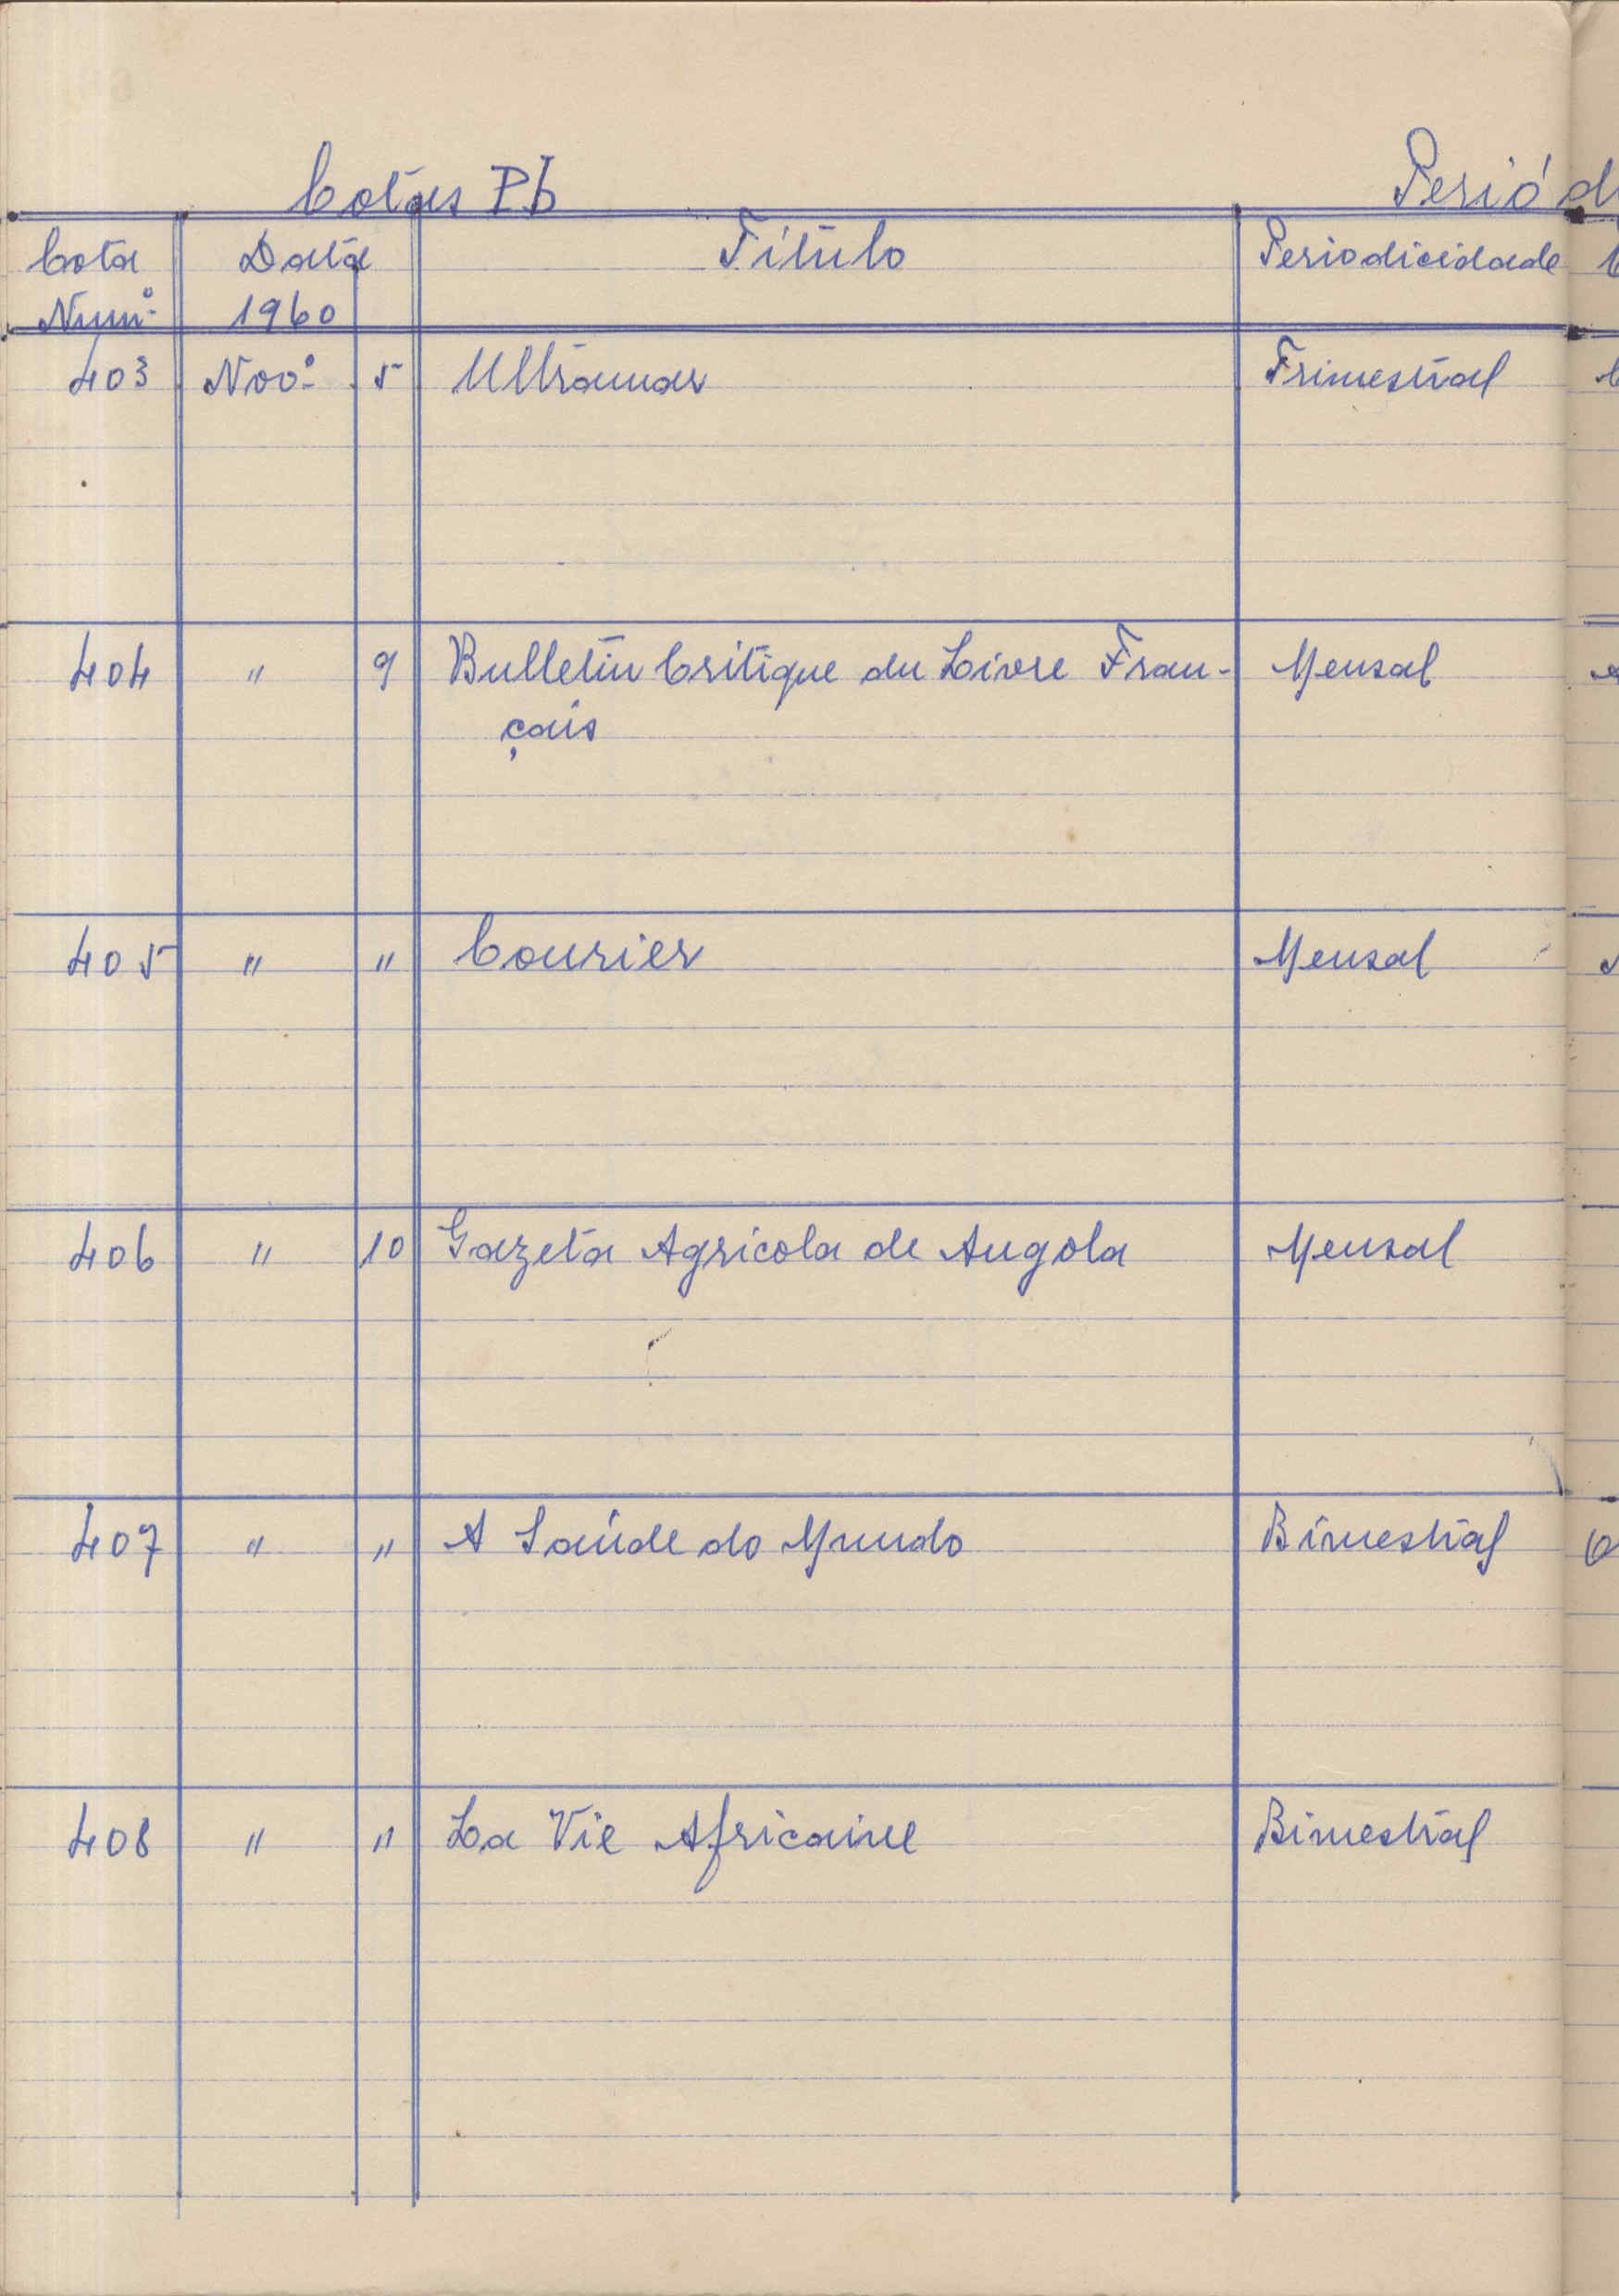 Cotas Pb Periód
Cota Data Título Periodicidade
Numº 1960
403 Novº 5 Ultramar Trimestral
404 " 9 Bulletin Critique du Livre Fran- Mensal
çais
405 " " Courier Mensal
406 " 10 Gazeta Agricola de Angola Mensal
407 " " A Saúde do Mundo Bimestral
408 " " La Vie Africaine Bimestral